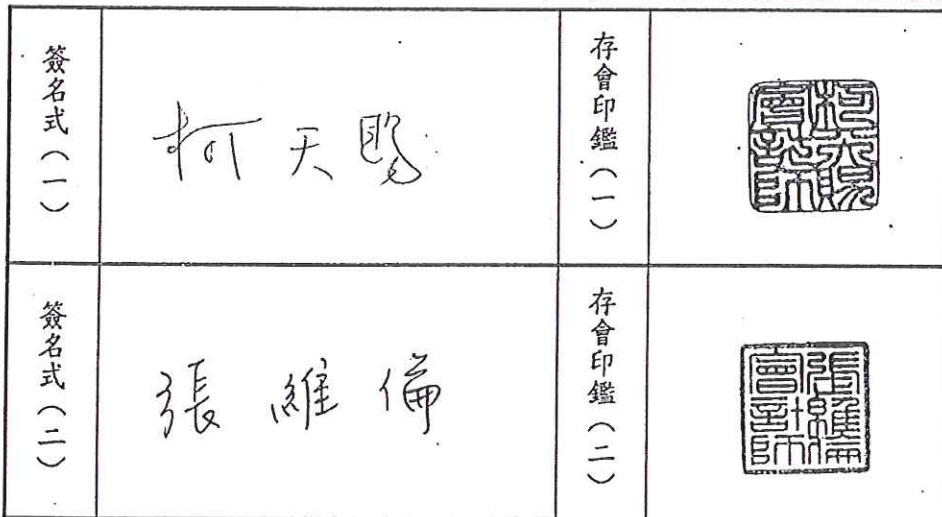 簽名式（一）
柯天賜
存會印鑑（一）
柯天賜
會計師
簽名式（二）
張維倫
存會印鑑（二）
張維倫
會計師